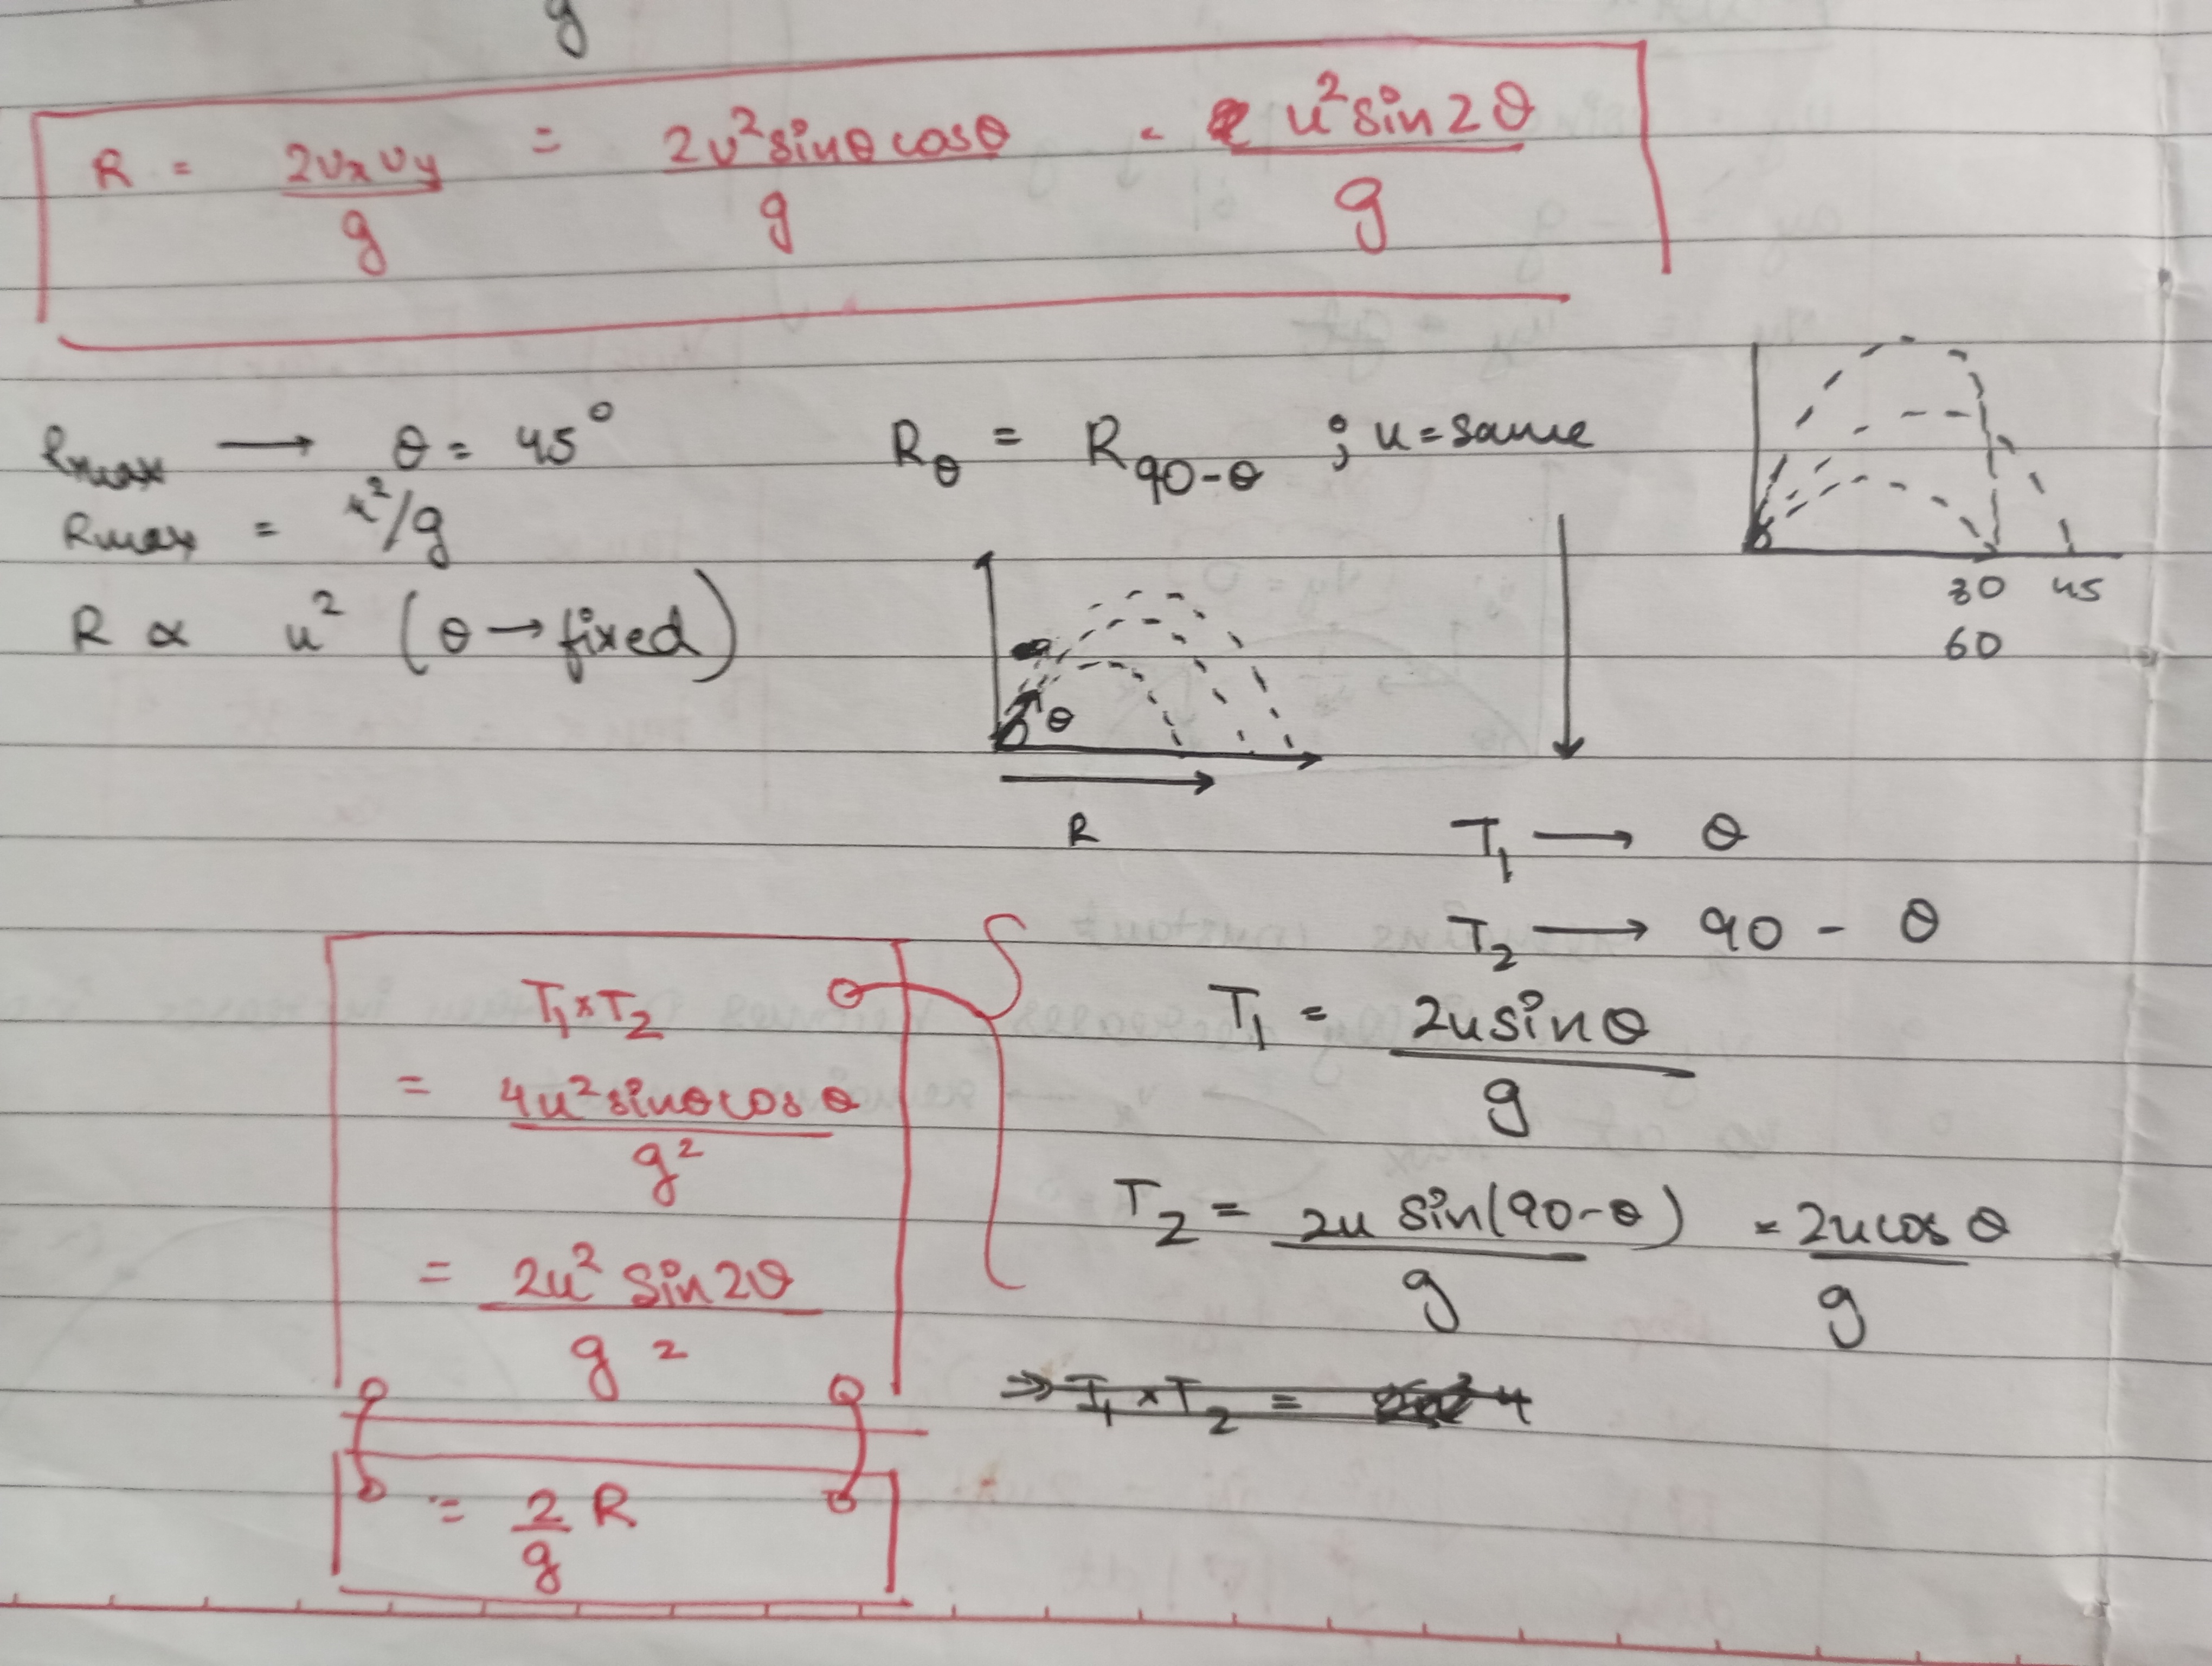 g
R = 2vₓvᵧ/g = 2v²sinθcosθ/g = u²sin2θ/g
Rmax → θ = 45°
Rmax = u²/g
R ∝ u² (θ → fixed)
R_θ = R_90-θ ; u = same
30 45
60
θ
R
T₁ → θ
T₂ → 90 - θ
T₁ = 2usinθ/g
T₂ = 2u sin(90-θ)/g = 2ucosθ/g
⇒ T₁ × T₂ = 4
T₁×T₂
= 4u²sinθcosθ/g²
= 2u² sin2θ/g²
= 2/g R